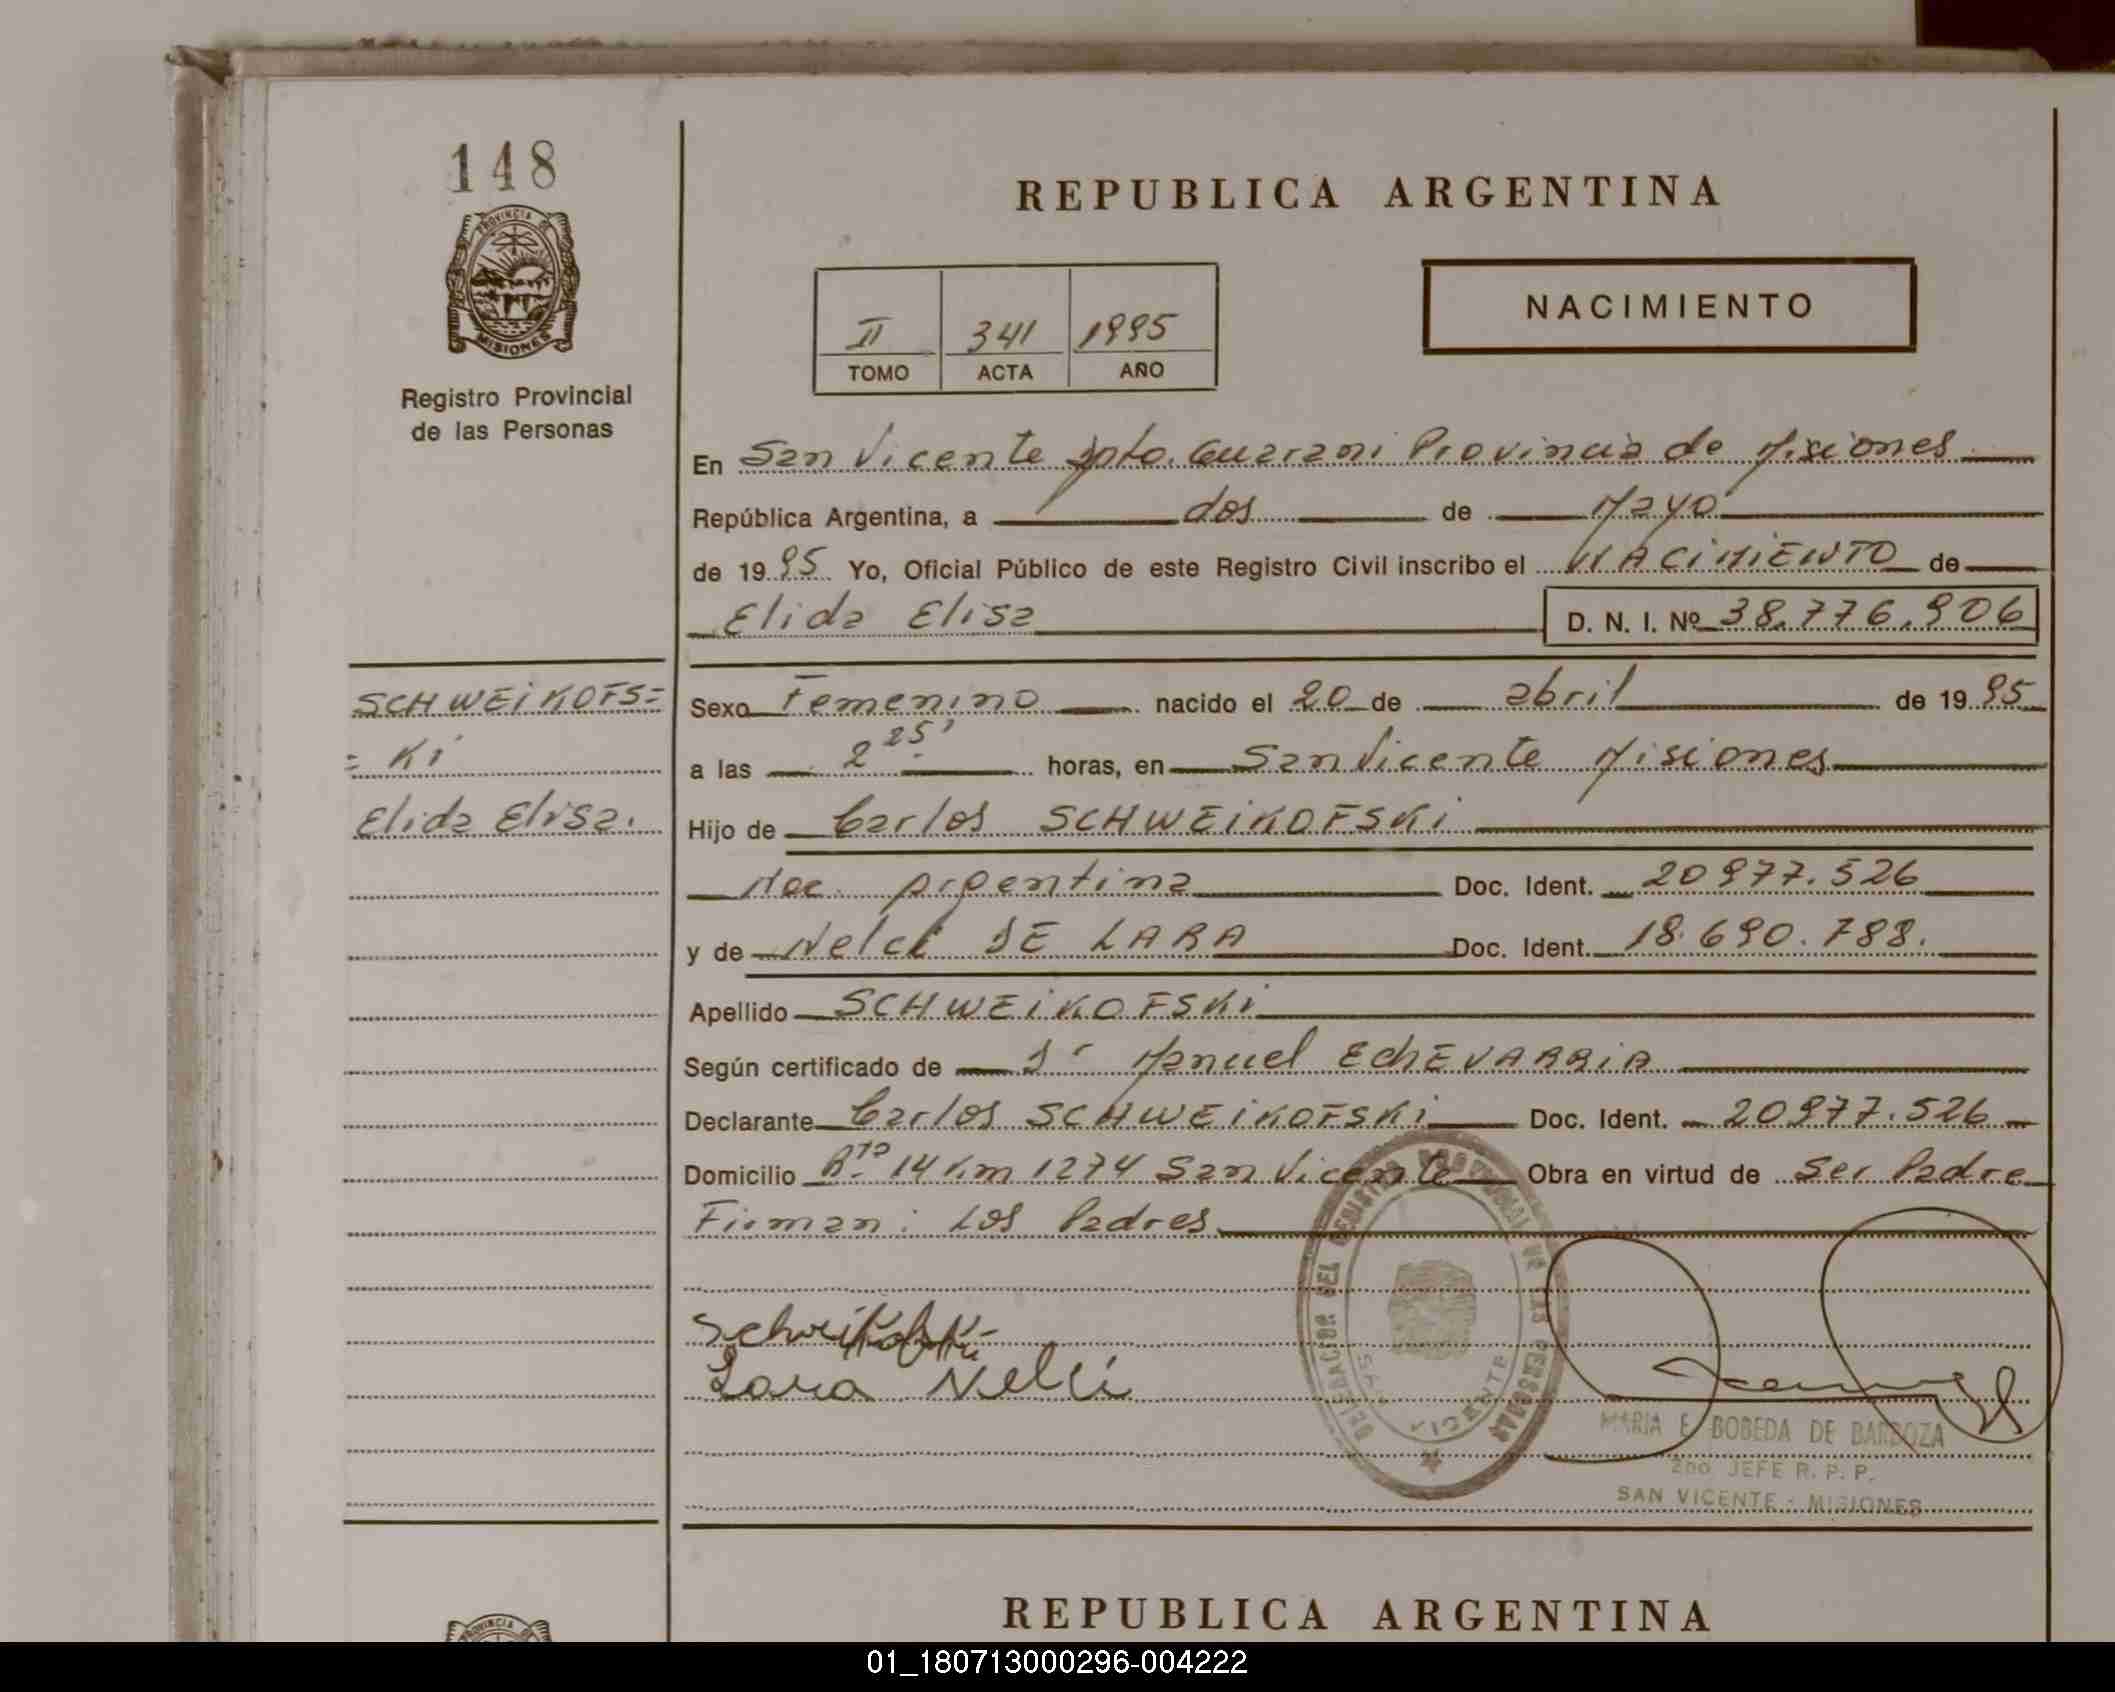 148
PROVINCIA DE
MISIONES
Registro Provincial
de las Personas
REPUBLICA ARGENTINA
NACIMIENTO
II 341 1995
TOMO ACTA AÑO
En San Vicente Dpto. Guarani Provincia de Misiones
República Argentina, a dos de Mayo
de 1995 Yo, Oficial Público de este Registro Civil inscribo el NACIMIENTO de
Elida Elisa D. N. I. Nº 38.776.906
SCHWEIKOFS=
= Ki
Elida Elisa.
Sexo Femenino nacido el 20 de abril de 1995
a las 2 25' horas, en San Vicente Misiones
Hijo de Carlos SCHWEIKOFSKi
Nac. Argentina Doc. Ident. 20977.526
y de Nelci DE LARA Doc. Ident. 18.690.788.
Apellido SCHWEIKOFSKi
Según certificado de Dr Manuel EchEVARRiA
Declarante Carlos SCHWEIKOFSKi Doc. Ident. 20977.526
Domicilio Rta 14 Km 1274 San Vicente Obra en virtud de Ser Padre
Firman: Los Padres
Lara Nelci
DELEGACION DEL REGISTRO PROVINCIAL DE LAS PERSONAS
SAN VICENTE
MARIA E. BOBEDA DE BARBOZA
2do JEFE R. P. P.
SAN VICENTE - MISIONES
REPUBLICA ARGENTINA
01_180713000296-004222